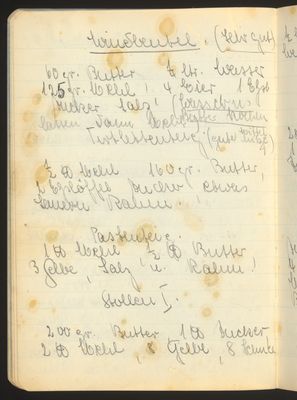 Windbeutel. (sehr gut)
60 gr. Butter ½ ltr. Wasser
125 gr. Mehl! 4 Eier 1 Eßl
Zucker Salz!
lassen dann
(gute
½ ℔ Mehl 160 gr. Butter,
1 Eßlöffel Zucker etwas
sauren Rahm!
Pastenteig.
1 ℔ Mehl ½ ℔ Butter
3 Gelbe, Salz u. Rahm!
Stollen I.
200 gr. Butter 1 ℔ Zucker
2 ℔ Mehl, 8 Gelbe, 8